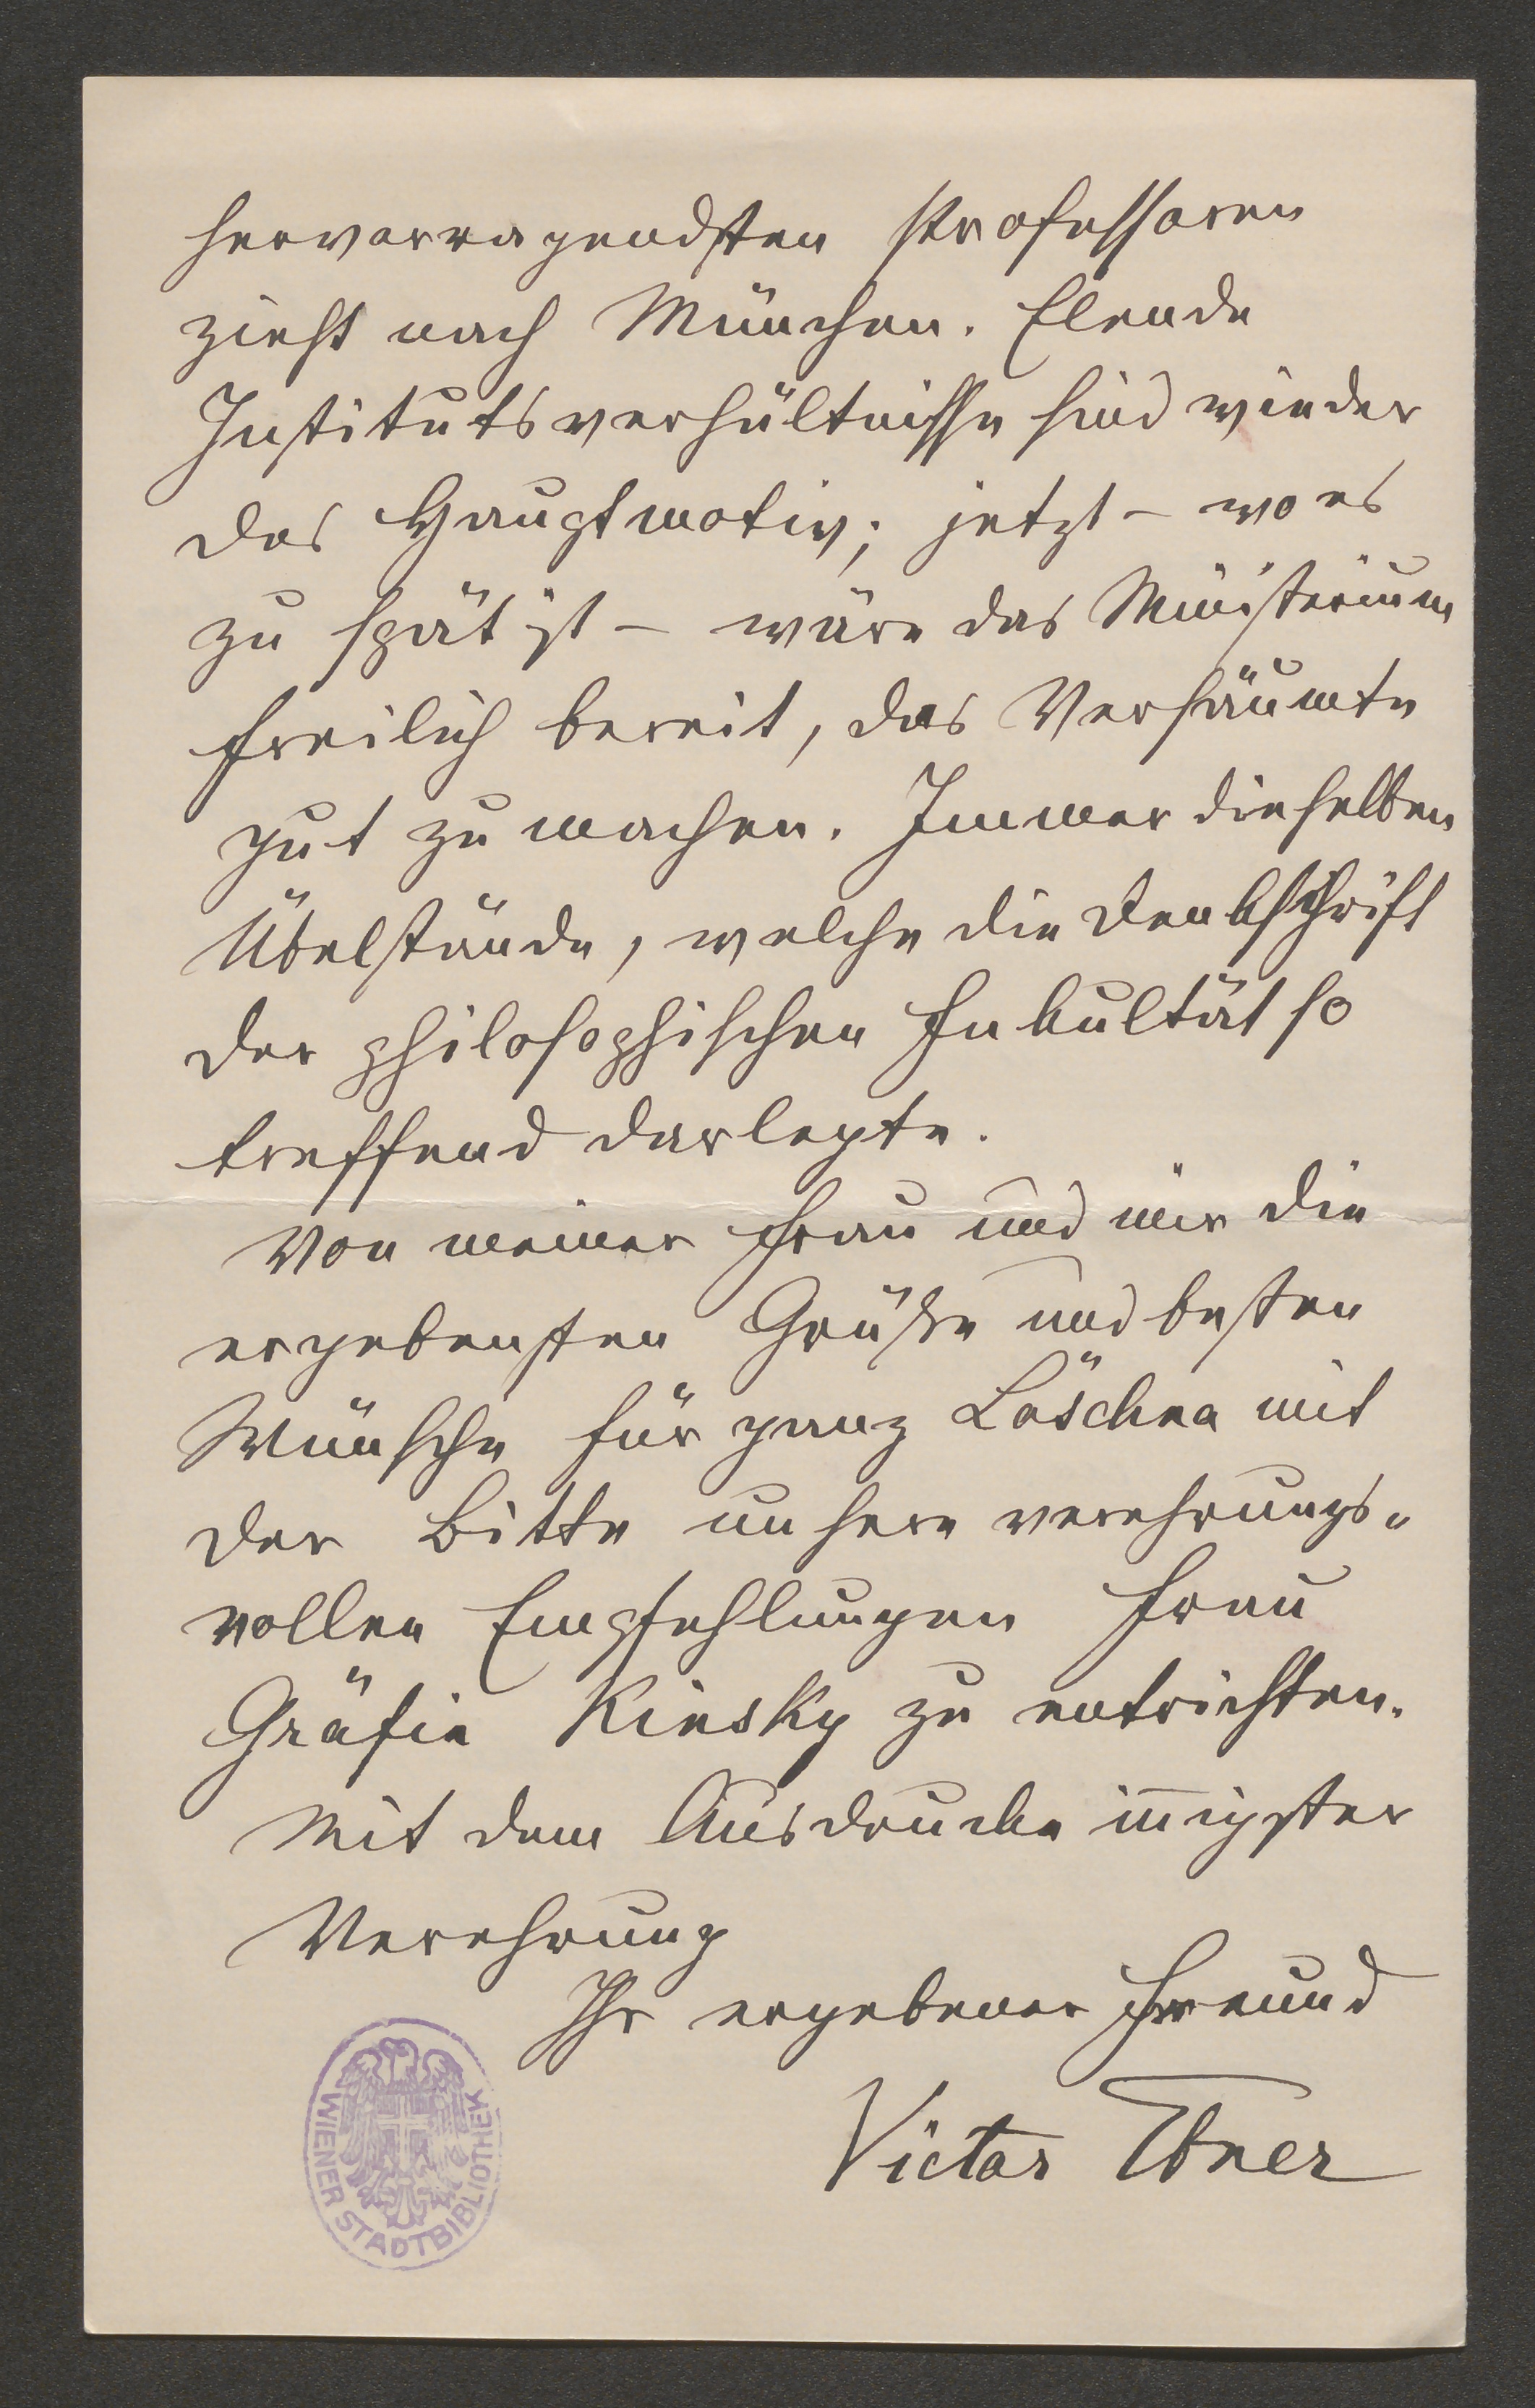 hervorragendsten Professoren
zieht nach München. Elende
Institutsverhältnisse sind wieder
das Hauptmotiv; jetzt – wo es
zu spät ist – wäre das Ministerium
freilich bereit, das Versäumte
gut zu machen. Immer dieselben
Übelstände, welche die Denkschrift
der philosophischen Fakultät so
treffend darlegte.
Von meiner Frau und mir die
ergebensten Grüße und besten
Wünsche für ganz Löschna mit
der Bitte unsere verehrungs-
vollen Empfehlungen Frau
Gräfin Kinsky zu entrichten.
Mit dem Ausdrucke in̅igster
Verehrung
Ihr ergebener Freund
Victor Ebner
WIENER STADTBIBLIOTHEK